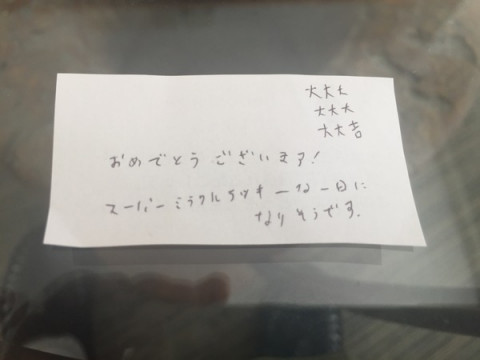 大大大
大大大
大大吉
おめでとうございます!
スーパーミラクルラッキーな一日に
なりそうです.